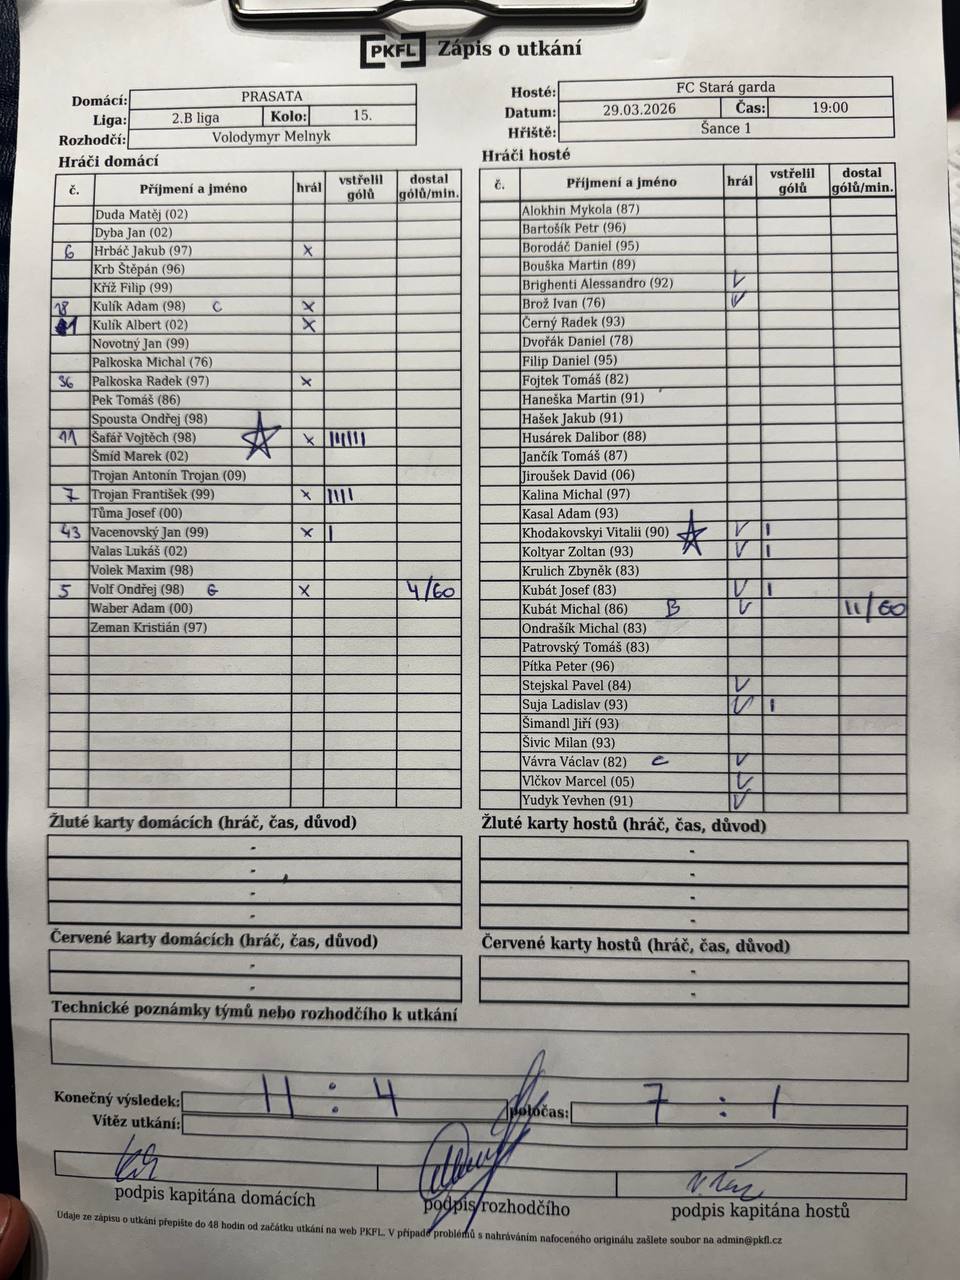 PKFL Zápis o utkání
Domácí: PRASATA
Liga: 2.B liga Kolo: 15.
Rozhodčí: Volodymyr Melnyk
Hosté: FC Stará garda
Datum: 29.03.2026 Čas: 19:00
Hřiště: Šance 1
Hráči domácí
č. Příjmení a jméno hrál vstřelil gólů dostal gólů/min.
Duda Matěj (02)
Dyba Jan (02)
6 Hrbáč Jakub (97) x
Krb Štěpán (96)
Kříž Filip (99)
18 Kulík Adam (98) C x
Kulík Albert (02) x
Novotný Jan (99)
Palkoska Michal (76)
36 Palkoska Radek (97) x
Pek Tomáš (86)
Spousta Ondřej (98)
11 Šafář Vojtěch (98) x IIIIII
Šmíd Marek (02)
Trojan Antonín Trojan (09)
7 Trojan František (99) x IIII
Tůma Josef (00)
43 Vacenovský Jan (99) x I
Valas Lukáš (02)
Volek Maxim (98)
5 Volf Ondřej (98) G x 4/60
Waber Adam (00)
Zeman Kristián (97)
Hráči hosté
č. Příjmení a jméno hrál vstřelil gólů dostal gólů/min.
Alokhin Mykola (87)
Bartošík Petr (96)
Borodáč Daniel (95)
Bouška Martin (89)
Brighenti Alessandro (92) V
Brož Ivan (76) V
Černý Radek (93)
Dvořák Daniel (78)
Filip Daniel (95)
Fojtek Tomáš (82)
Haneška Martin (91)
Hašek Jakub (91)
Husárek Dalibor (88)
Jančík Tomáš (87)
Jiroušek David (06)
Kalina Michal (97)
Kasal Adam (93)
Khodakovskyi Vitalii (90) V I
Koltyar Zoltan (93) V I
Krulich Zbyněk (83)
Kubát Josef (83) V I
Kubát Michal (86) B V 11/60
Ondrašík Michal (83)
Patrovský Tomáš (83)
Pítka Peter (96)
Stejskal Pavel (84) V
Suja Ladislav (93) V I
Šimandl Jiří (93)
Šivic Milan (93)
Vávra Václav (82) C V
Vlčkov Marcel (05) V
Yudyk Yevhen (91) V
Žluté karty domácích (hráč, čas, důvod)
-
-
-
-
Žluté karty hostů (hráč, čas, důvod)
-
-
-
-
Červené karty domácích (hráč, čas, důvod)
-
-
Červené karty hostů (hráč, čas, důvod)
-
-
Technické poznámky týmů nebo rozhodčího k utkání
Konečný výsledek: 11 : 4 poločas: 7 : 1
Vítěz utkání:
podpis kapitána domácích podpis rozhodčího podpis kapitána hostů
Údaje ze zápisu o utkání přepište do 48 hodin od začátku utkání na web PKFL. V případě problémů s nahráváním nafoceného originálu zašlete soubor na admin@pkfl.cz